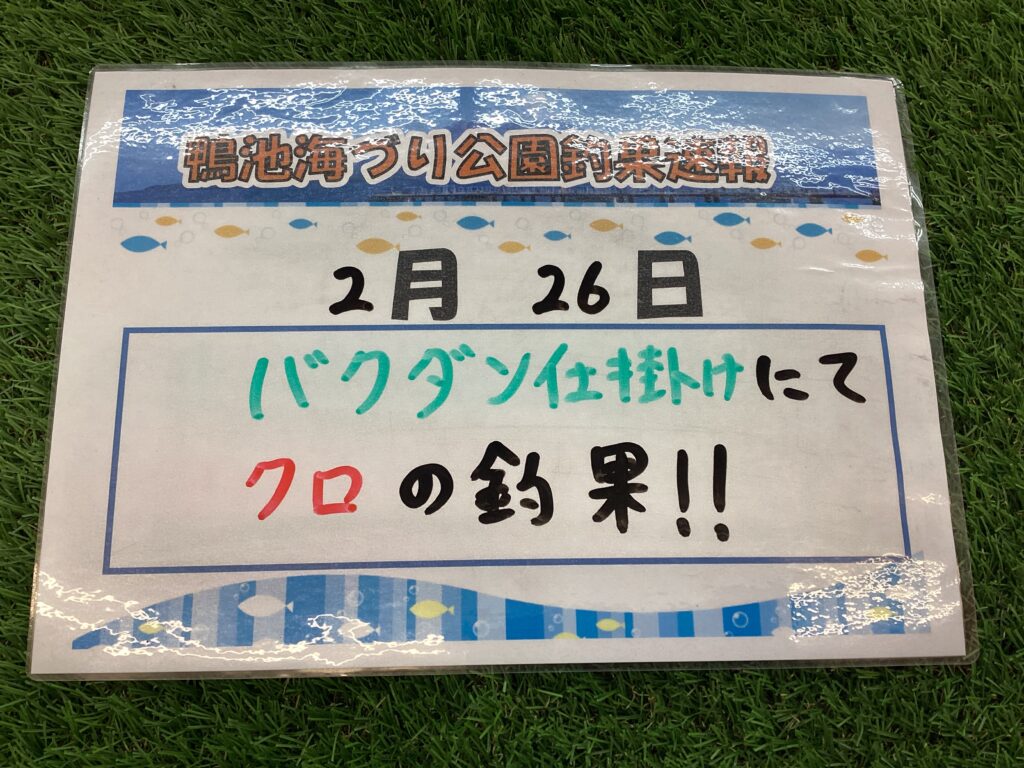 鴨池海づり公園釣果速報
2月 26日
バクダン仕掛けにて
クロの釣果!!